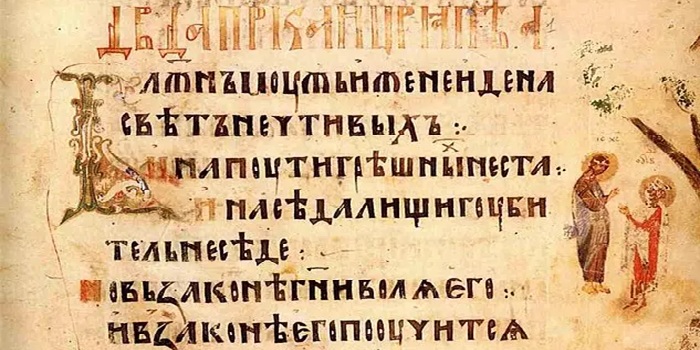 Дв҃да пр҃ка и цр҃ѧ пѣ а
Блж҃нъ моужь иже не иде на
свѣтъ нечтивыхъ :·
и на поути грѣшныⷯ не ста :·
и на сѣдалищи гоуби
тель не сѣде :
но вь ꙁаконѣ гн҃и волѧ его :·
и в ꙁаконѣ его пооучитсѧ